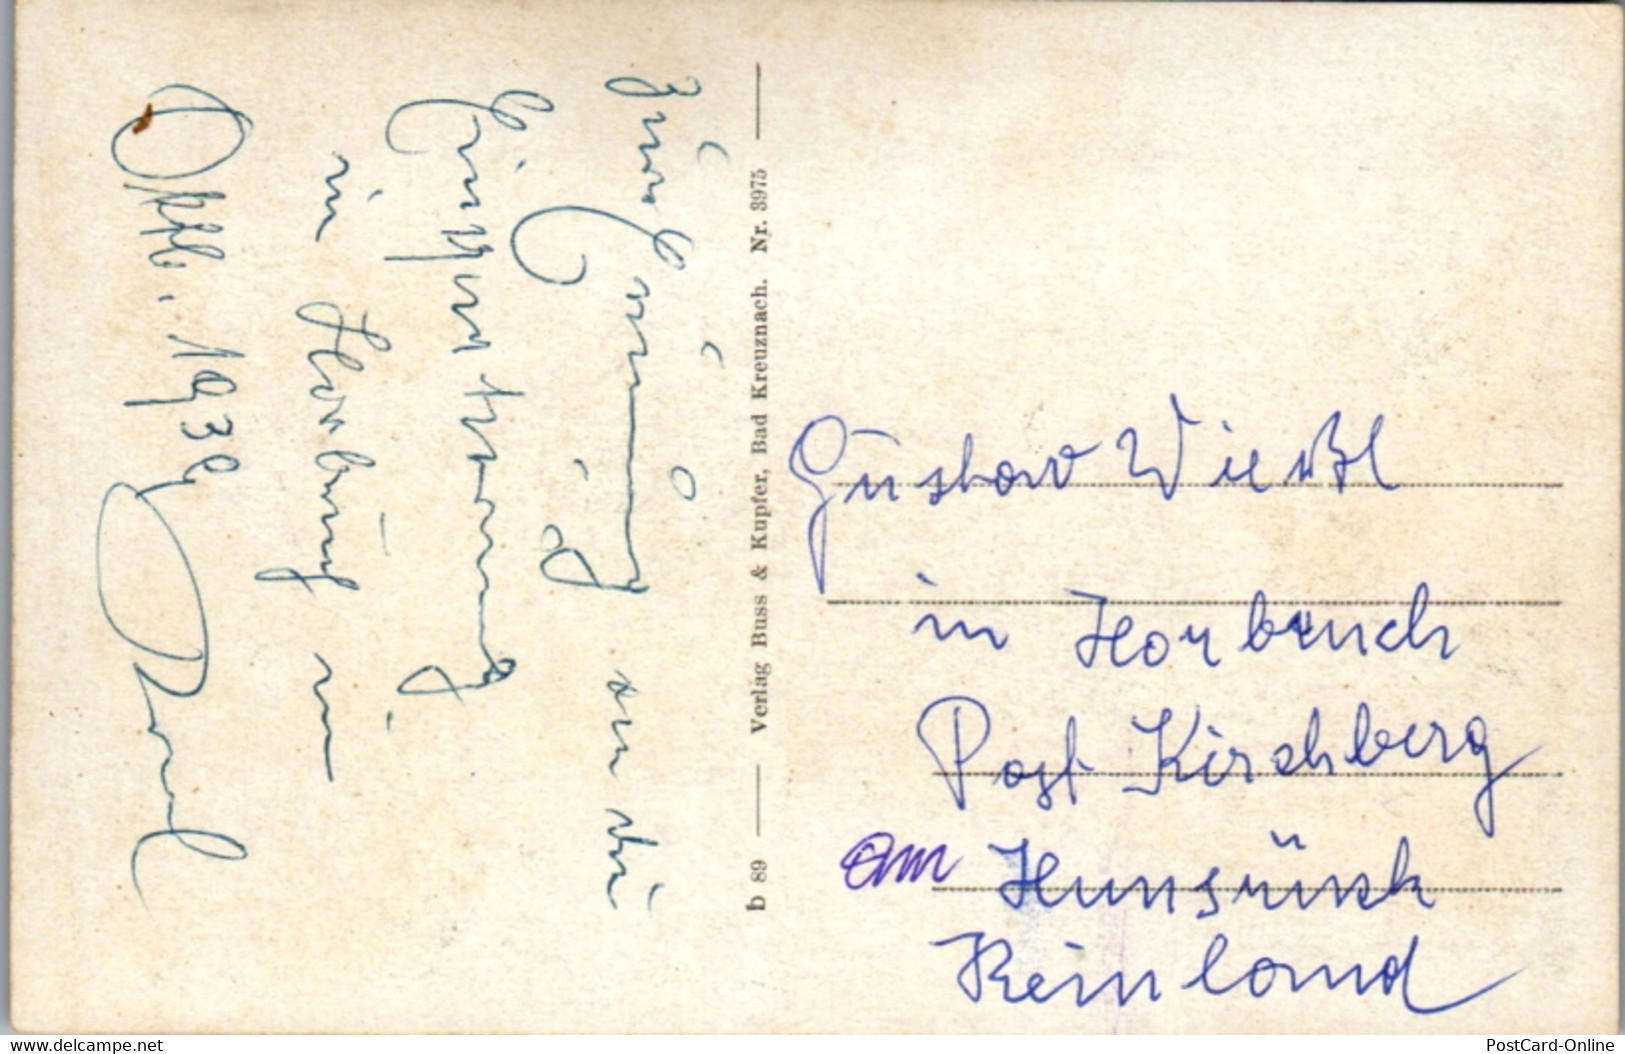 Zur Erinnerung an die
Einquartierung
in Horbruch im
Oktb. 1939
b 89 Verlag Buss & Kupfer, Bad Kreuznach. Nr. 3975
Gustav
in Horbruch
Post Kirchberg
am Hunsrück
Reinland
www.delcampe.net
PostCard-Online